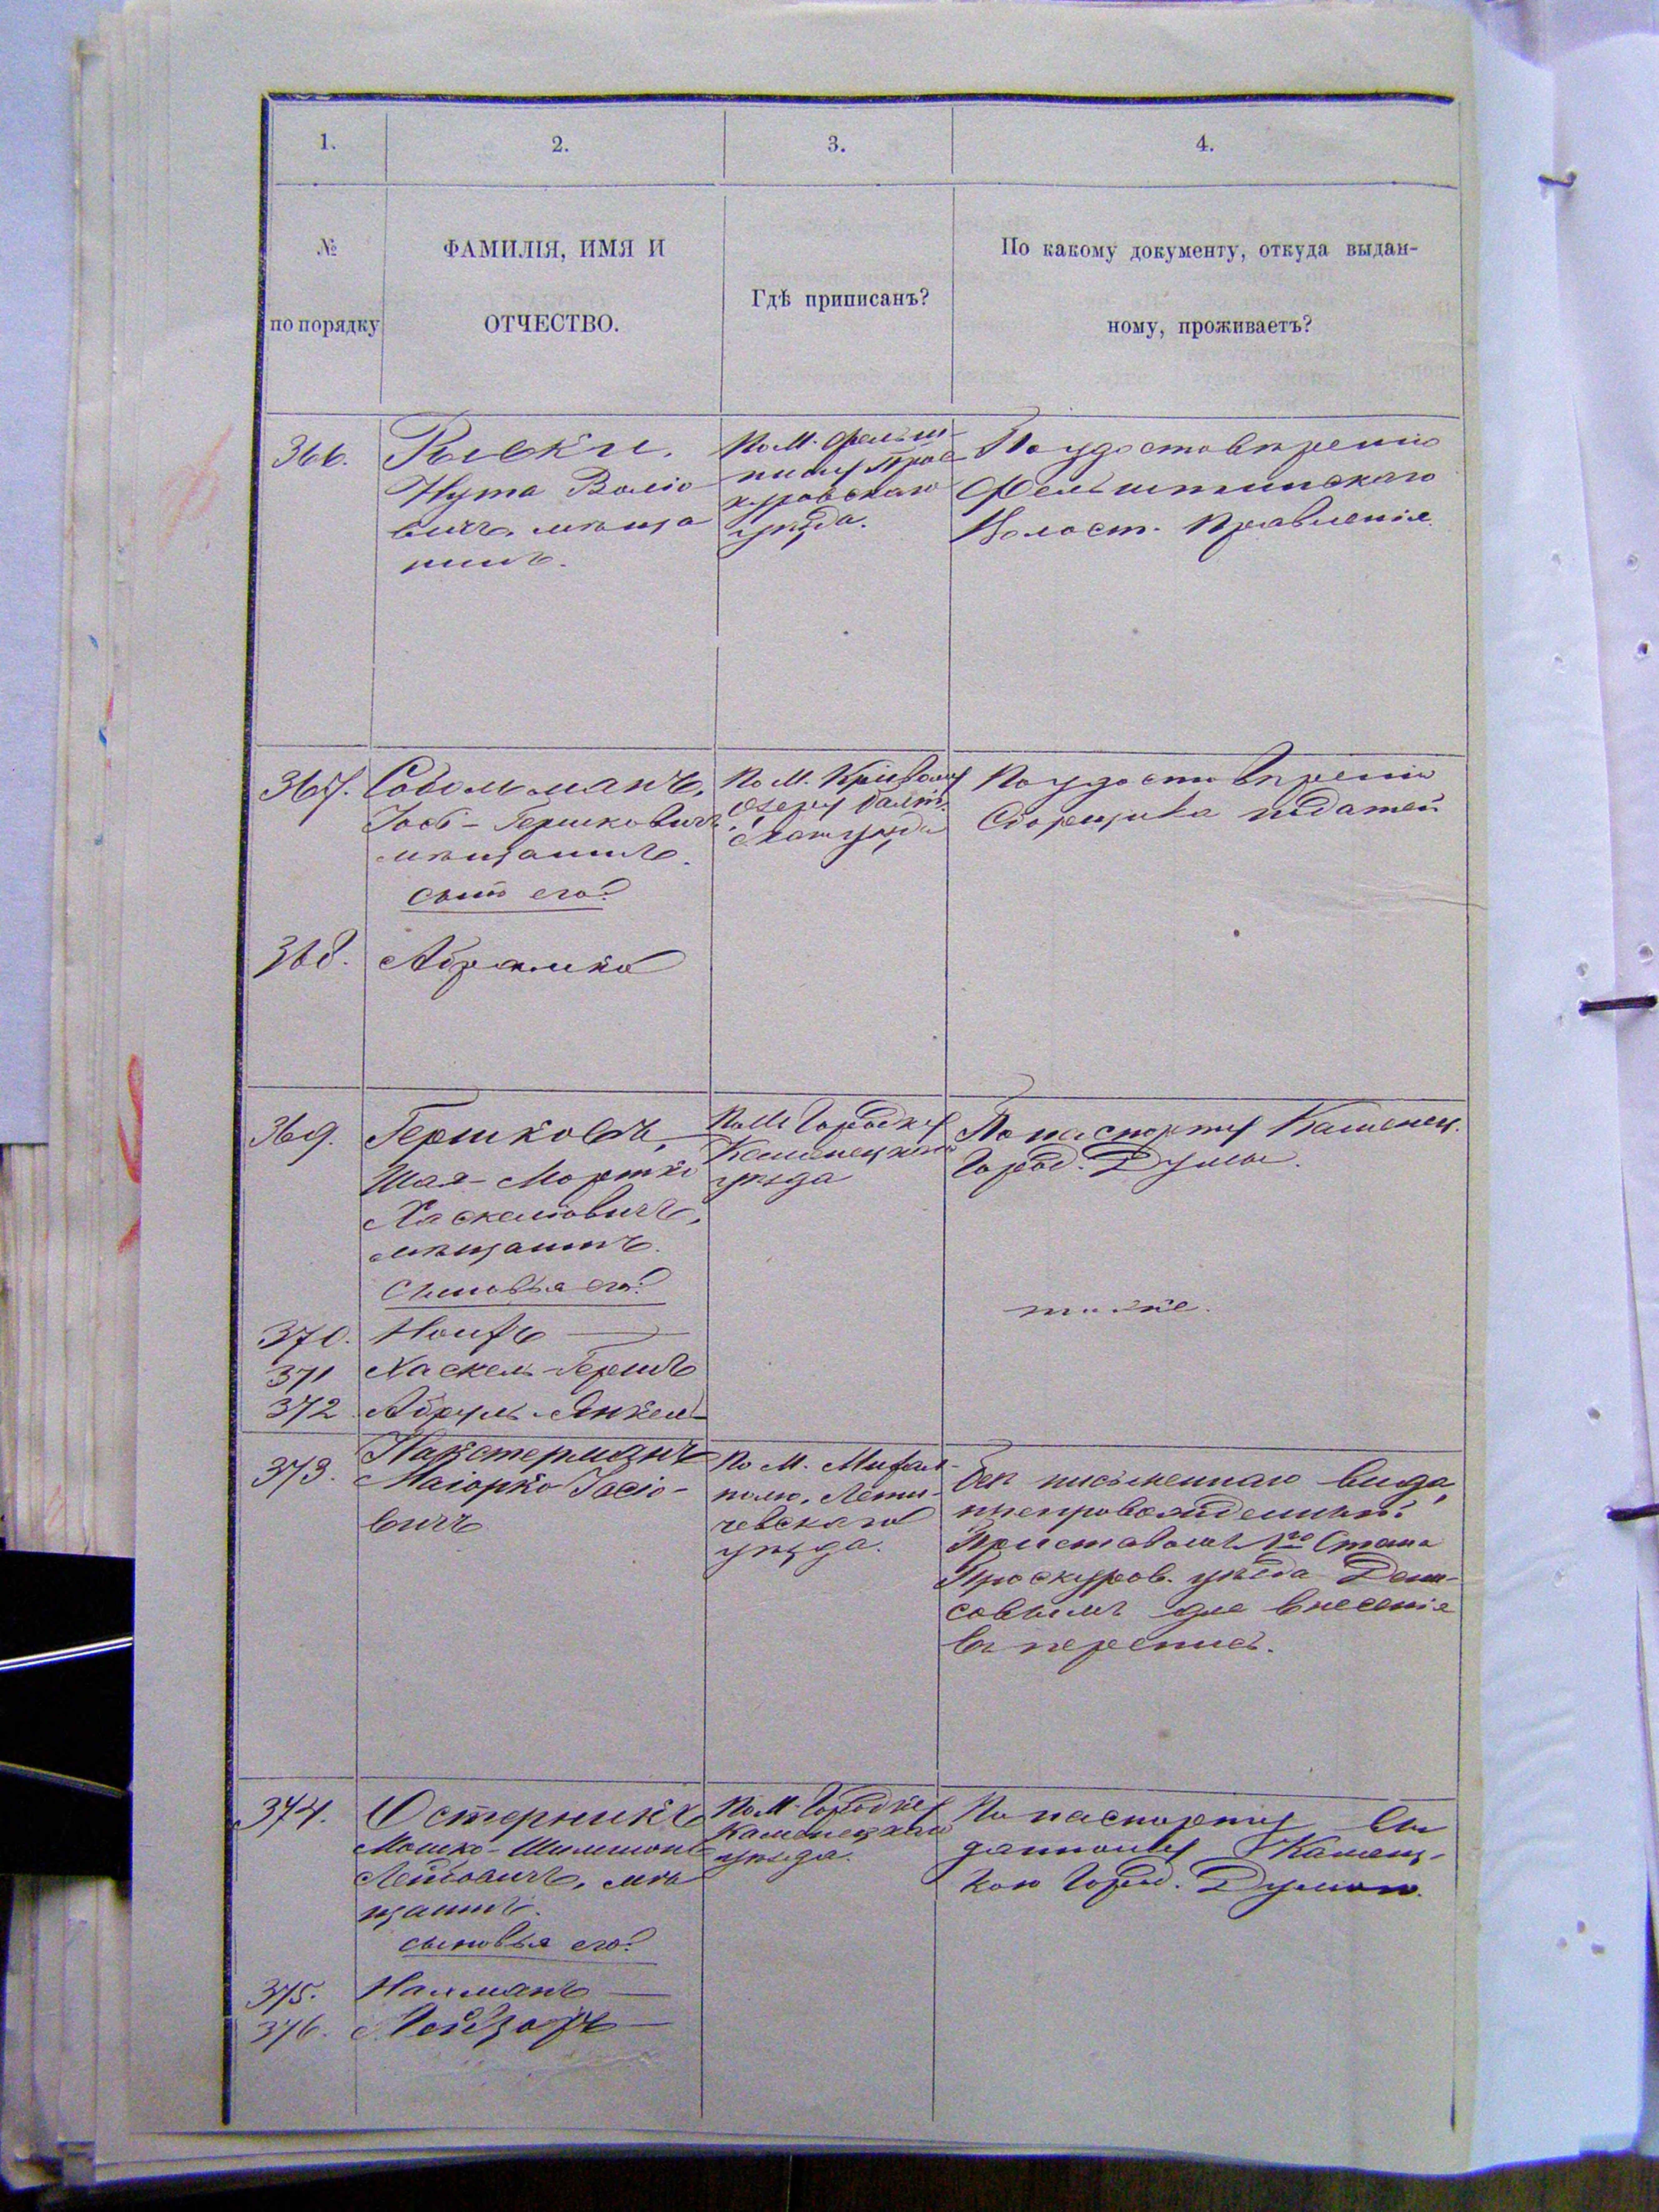 1.
2.
3.
4.
№
по порядку
ФАМИЛІЯ, ИМЯ И
ОТЧЕСТВО.
Гдѣ приписанъ?
По какому документу, откуда выдан-
ному, проживаетъ?
366.
Нута Воліо
вичъ, мѣща
нинъ.
По М. Фельш-
тину Прос
куровскаго
уѣзда.
По удостовѣренію
Фельштинскаго
Волост. Правленія.
367.
Собольманъ,
Іось-Гершковичъ
мѣщанинъ.
сынъ его:
По М. Кривому
Озеру Балт.
скаго уѣзда
По удостовѣренію
Сборщика податей
368.
Абрамко
369.
Гершковъ,
Шая-Мортко
Хаскелювичъ,
мѣщанинъ.
Сыновья его:
По М. Городку
Каменецкаго
уѣзда
По паспорту Каменец.
Город. Думы.
тоже.
370.
371
Хаскель-Гершъ
372
Абрумъ-Янкель
373.
Маіорко Іосіо-
вичъ
По М. Михал-
полю, Лети-
чевскаго
уѣзда.
Безъ письменнаго вида,
препровожденный
Приставомъ 1го Стана
Проскуров. уѣзда Дени-
совымъ для внесенія
въ перепись.
374.
Остерникъ
Мошко-Шлимонъ
Лейбовичъ, мѣ
щанинъ.
сыновья его:
По М. Городку
Каменецкаго
уѣзда.
По паспорту вы
данному Каменец-
кою Город. Думою.
375.
Нахманъ
376.
Лейзоръ